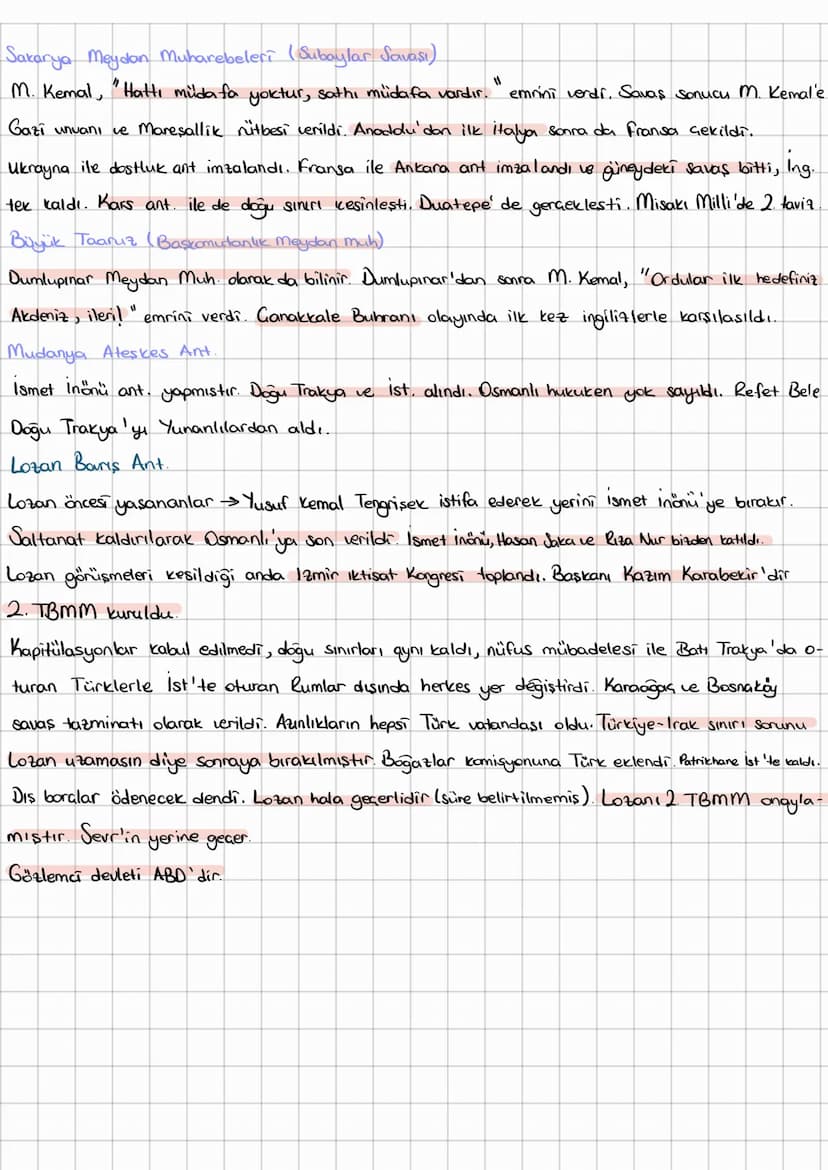 Sakarya Meydan Muharebeleri (Subaylar Savası)
M. Kemal, "Hattı müdafa yoktur, sathı müdafa vardır." emrini verdi. Savaş sonucu M. Kemal'e
Gazi unvanı ve Mareşallik rütbesi verildi. Anadolu'dan ilk italya sonra da fransa çekildi.
Ukrayna ile dostluk ant imzalandı. Fransa ile Ankara ant imzalandı ve güneydeki savaş bitti, ing.
tek kaldı. Kars ant. ile de doğu sınırı kesinleşti. Duatepe'de gerçeklesti. Misakı Milli'de 2. taviz.
Büyük Taaruz (Başkomutanlık Meydan muh)
Dumlupınar Meydan Muh. olarak da bilinir. Dumlupınar'dan sonra M. Kemal, "Ordular ilk hedefiniz
Akdeniz, ileri!" emrini verdi. Çanakkale Buhranı olayında ilk kez ingilizlerle karşılaşıldı.
Mudanya Ateskes Ant.
İsmet İnönü ant. yapmıstır. Doğu Trakya ve ist. alındı. Osmanlı hukuken yok sayıldı. Refet Bele
Doğu Trakya'yı Yunanlılardan aldı.
Lozan Barış Ant.
Lozan öncesi yasananlar → Yusuf Kemal Tengrişek istifa ederek yerini ismet inönü'ye bırakır.
Saltanat kaldırılarak Osmanlı'ya son verildi. İsmet inönü, Hasan Saka ve Rıza Nur bizden katıldı.
Lozan görüşmeleri kesildiği anda Izmir iktisat Kongresi toplandı. Başkanı Kazım Karabekir'dir
2. TBMM kuruldu.
Kapitülasyonlar kabul edilmedi, doğu sınırları aynı kaldı, nüfus mübadelesi ile Batı Trakya'da o-
turan Türklerle İst'te oturan Rumlar dışında herkes yer değiştirdi. Karaağaç ve Bosnaköy
savaş tazminatı olarak verildi. Azınlıkların hepsi Türk vatandaşı oldu. Türkiye-Irak sınırı sorunu
Lozan uzamasın diye sonraya bırakılmıştır. Boğazlar komisyonuna Türk eklendi. Patrikhane ist'te kaldı.
Dış borçlar ödenecek dendi. Lozan hala geçerlidir (süre belirtilmemis). Lozanı 2 TBMM onayla-
mıştır. Sevr'in yerine geçer.
Gözlemci devleti ABD'dir.